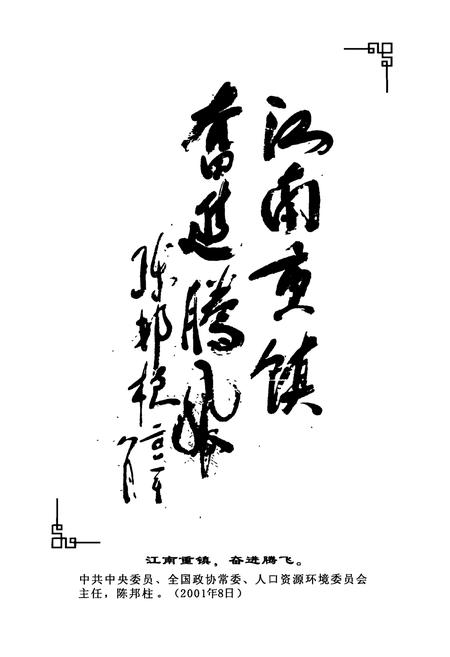 江南重镇
奋进腾飞
陈邦柱二〇〇一年
八月
江南重镇，奋进腾飞。
中共中央委员、全国政协常委、人口资源环境委员会
主任，陈邦柱。（2001年8日）